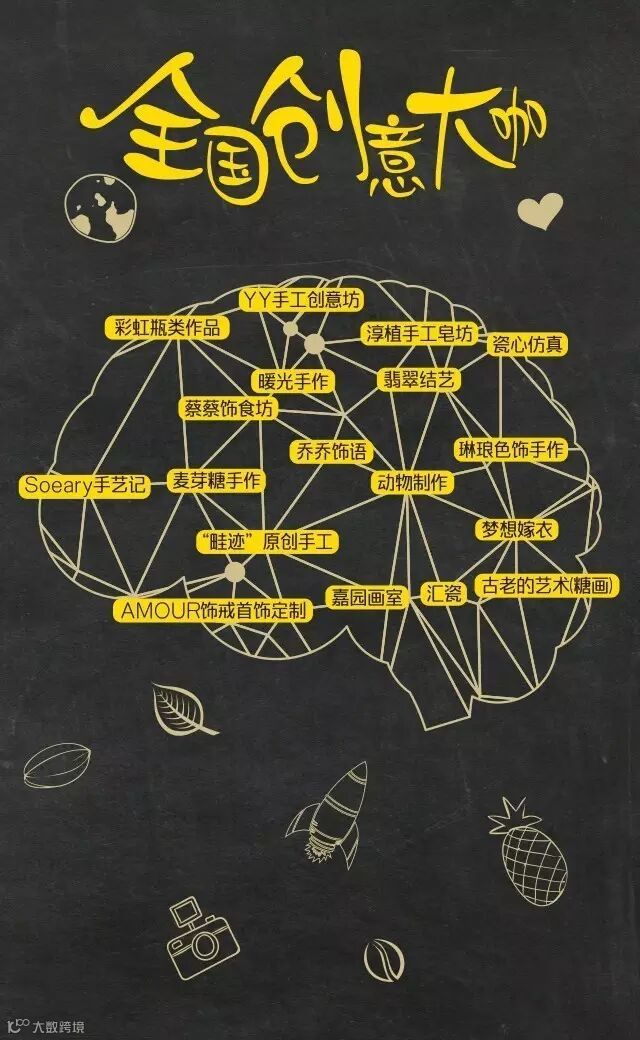 全国创意大咖
YY手工创意坊
彩虹瓶类作品
淳植手工皂坊
瓷心仿真
暖光手作
翡翠结艺
蔡蔡饰食坊
乔乔饰语
琳琅色饰手作
Soeary手艺记
麦芽糖手作
动物制作
“畦迹”原创手工
梦想嫁衣
AMOUR饰戒首饰定制
嘉园画室
汇瓷
古老的艺术(糖画)
大数跨境